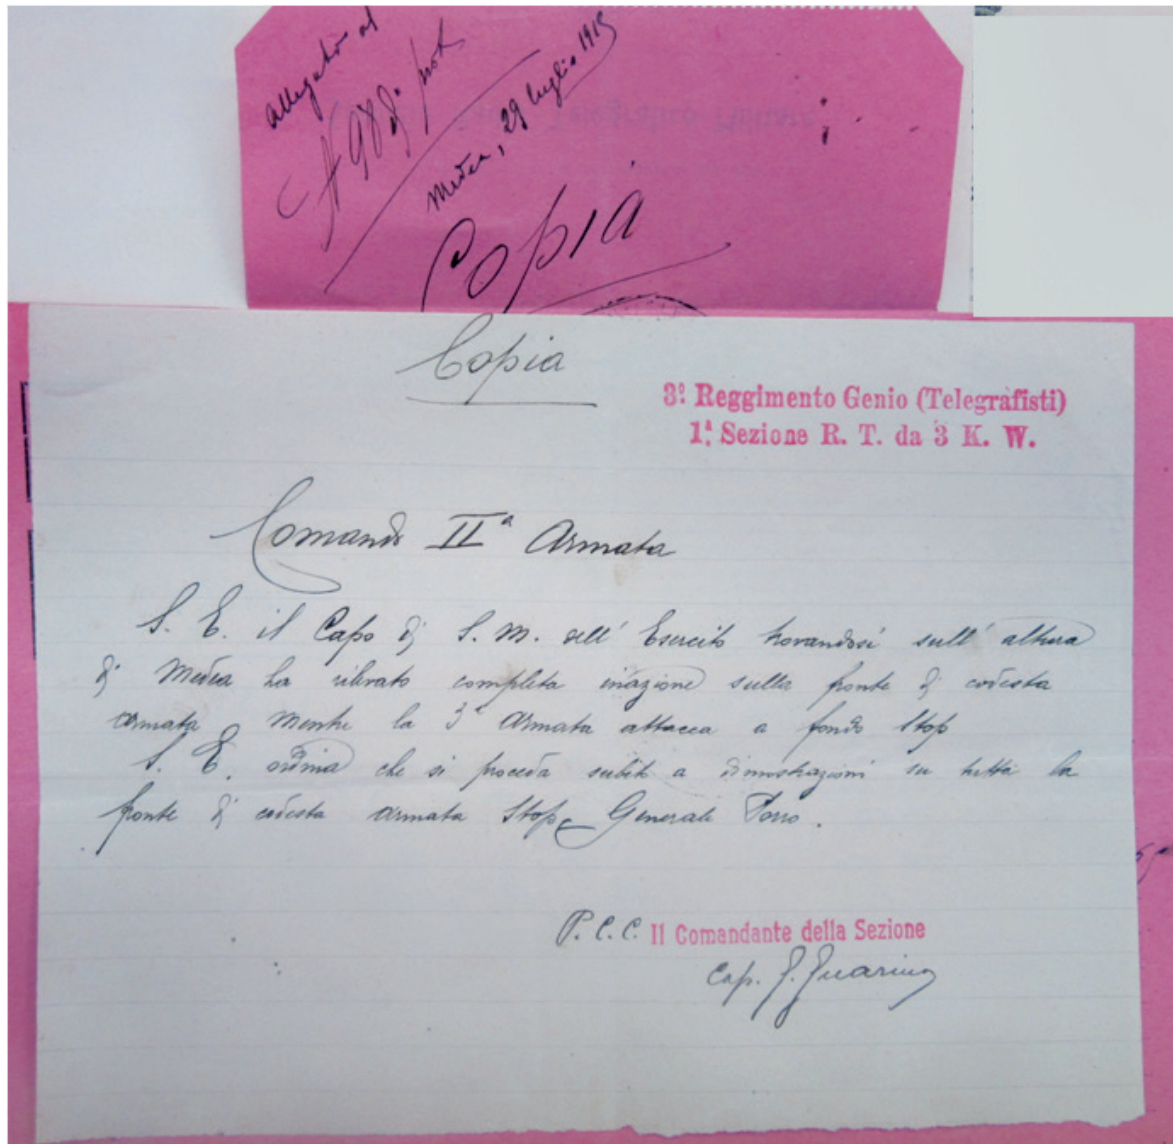 allegato al
N 988 di prot
Medea, 29 luglio 1915
Copia
Copia
3º Reggimento Genio (Telegrafisti)
1ª Sezione R. T. da 3 K. W.
Comando IIª Armata
S. E. il Capo di S. M. dell' Esercito trovandosi sull' altura
di Medea ha rilevato completa inazione sulla fronte di codesta
armata mentre la 3ª Armata attacca a fondo Stop
S. E. ordina che si proceda subito a dimostrazioni su tutta la
fronte di codesta armata Stop Generale Porro.
P. C. C. Il Comandante della Sezione
Cap. G. Guarino